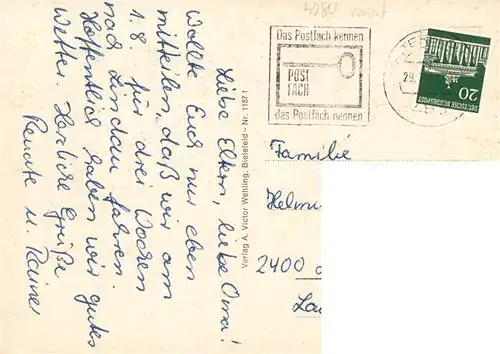 Liebe Eltern, liebe Oma!
Wollte Euch nur eben
mitteilen, daß wir am
1.8. für drei Wochen
nach Lindau fahren.
Hoffentlich haben wir gutes
Wetter. Herzliche Grüße
Renate u. Rainer
Verlag A. Victor Wehling, Bielefeld - Nr. 1187/
4980
Das Postfach kennen
POST
FACH
das Postfach nennen
29.
20
DEUTSCHE BUNDESPOST
Familie
Helmu
2400